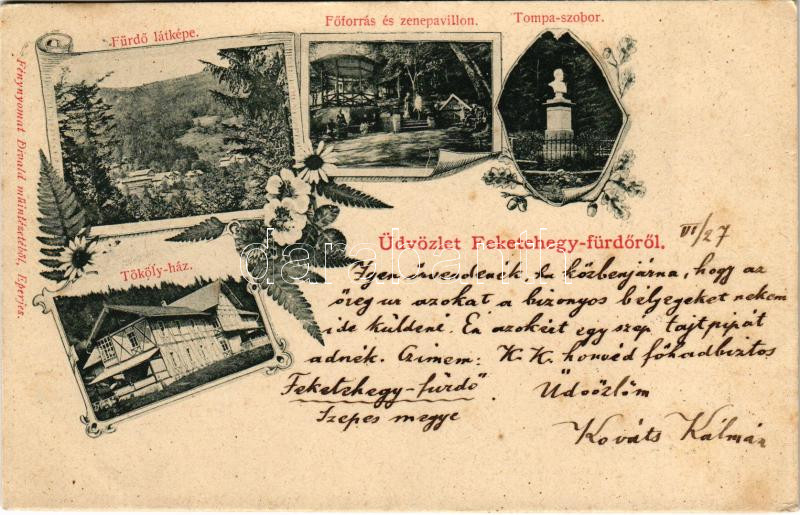 Fürdő látképe.
Főforrás és zenepavillon.
Tompa-szobor.
Tököly-ház.
Fénynyomat Divald műintézetéből, Eperjes.
Üdvözlet Feketehegy-fürdőről.
VI/27
Igen örvendenék, ha közbenjárna, hogy az
öreg ur azokat a bizonyos bélyegeket nekem
ide küldené. Én azokért egy szép tajtpipát
adnék. Czimem: K. K. honvéd főhadbiztos
Feketehegy-fürdő. Üdvözlöm
Szepes megye
Kováts Kálmán
darabanth.com